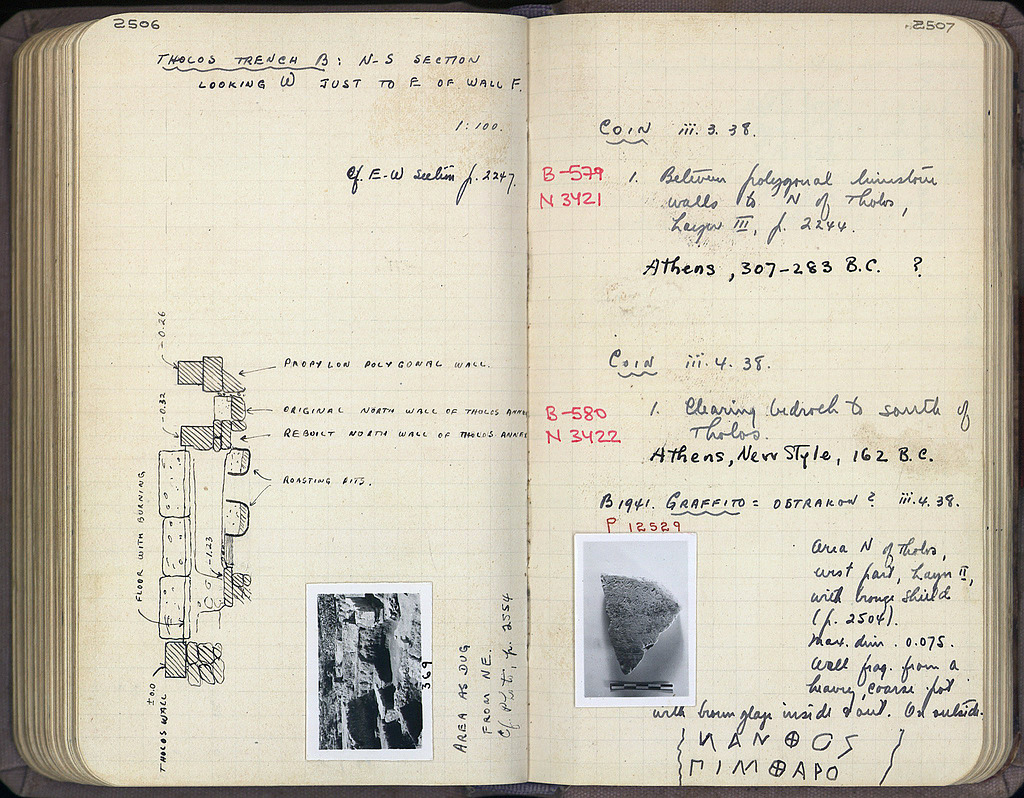 2506
THOLOS TRENCH B: N-S SECTION
LOOKING W JUST TO E OF WALL F.
1:100.
Cf. E-W Section p. 2247.
-0.26
PROPYLON POLYGONAL WALL.
-0.32
ORIGINAL NORTH WALL OF THOLOS ANNEX
REBUILT NORTH WALL OF THOLOS ANNEX
ROASTING PITS.
FLOOR WITH BURNING
-1.23
±0.0
THOLOS WALL
369
AREA AS DUG
FROM NE.
Cf. Phot, p. 2554
2507
COIN iii.3.38.
B-579
N 3421
1. Between polygonal limestone
walls to N of Tholos,
Layer III, p. 2244.
Athens, 307-283 B.C. ?
COIN iii.4.38.
B-580
N 3422
1. Clearing bedrock to south of
Tholos.
Athens, New Style, 162 B.C.
B1941. GRAFFITO = OSTRAKON? iii.4.38.
P 12529
Area N of Tholos,
west part, Layer II,
with bronze shield
(p. 2504).
Max. dim. 0.075.
Wall frag. from a
heavy, coarse pot
with brown glaze inside & out. On outside:
ΝΑΝ⊕ΟΣ
ΠΙΜ⊕ΑΡΟ